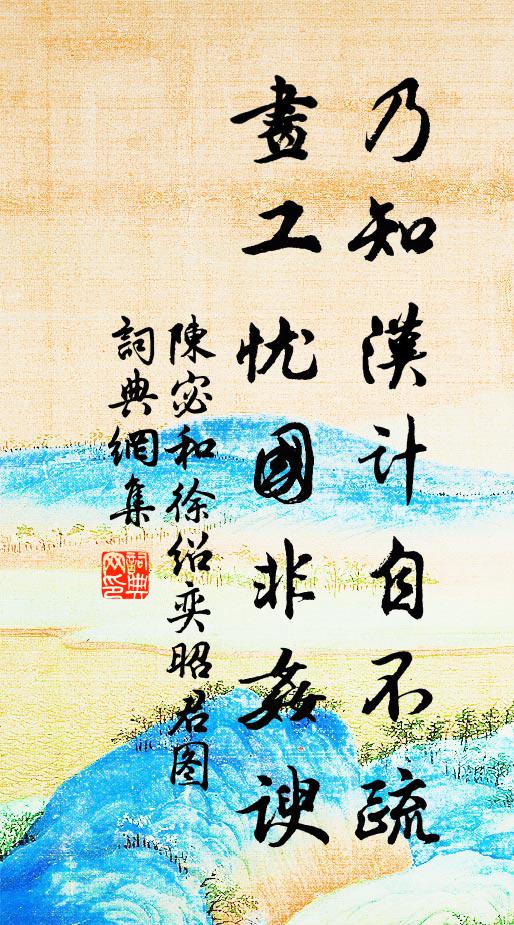 乃知漢計自不疏
畫工忧國非姦諛
陳宓和徐绍奕昭君图
詞典網集
詞典
网印